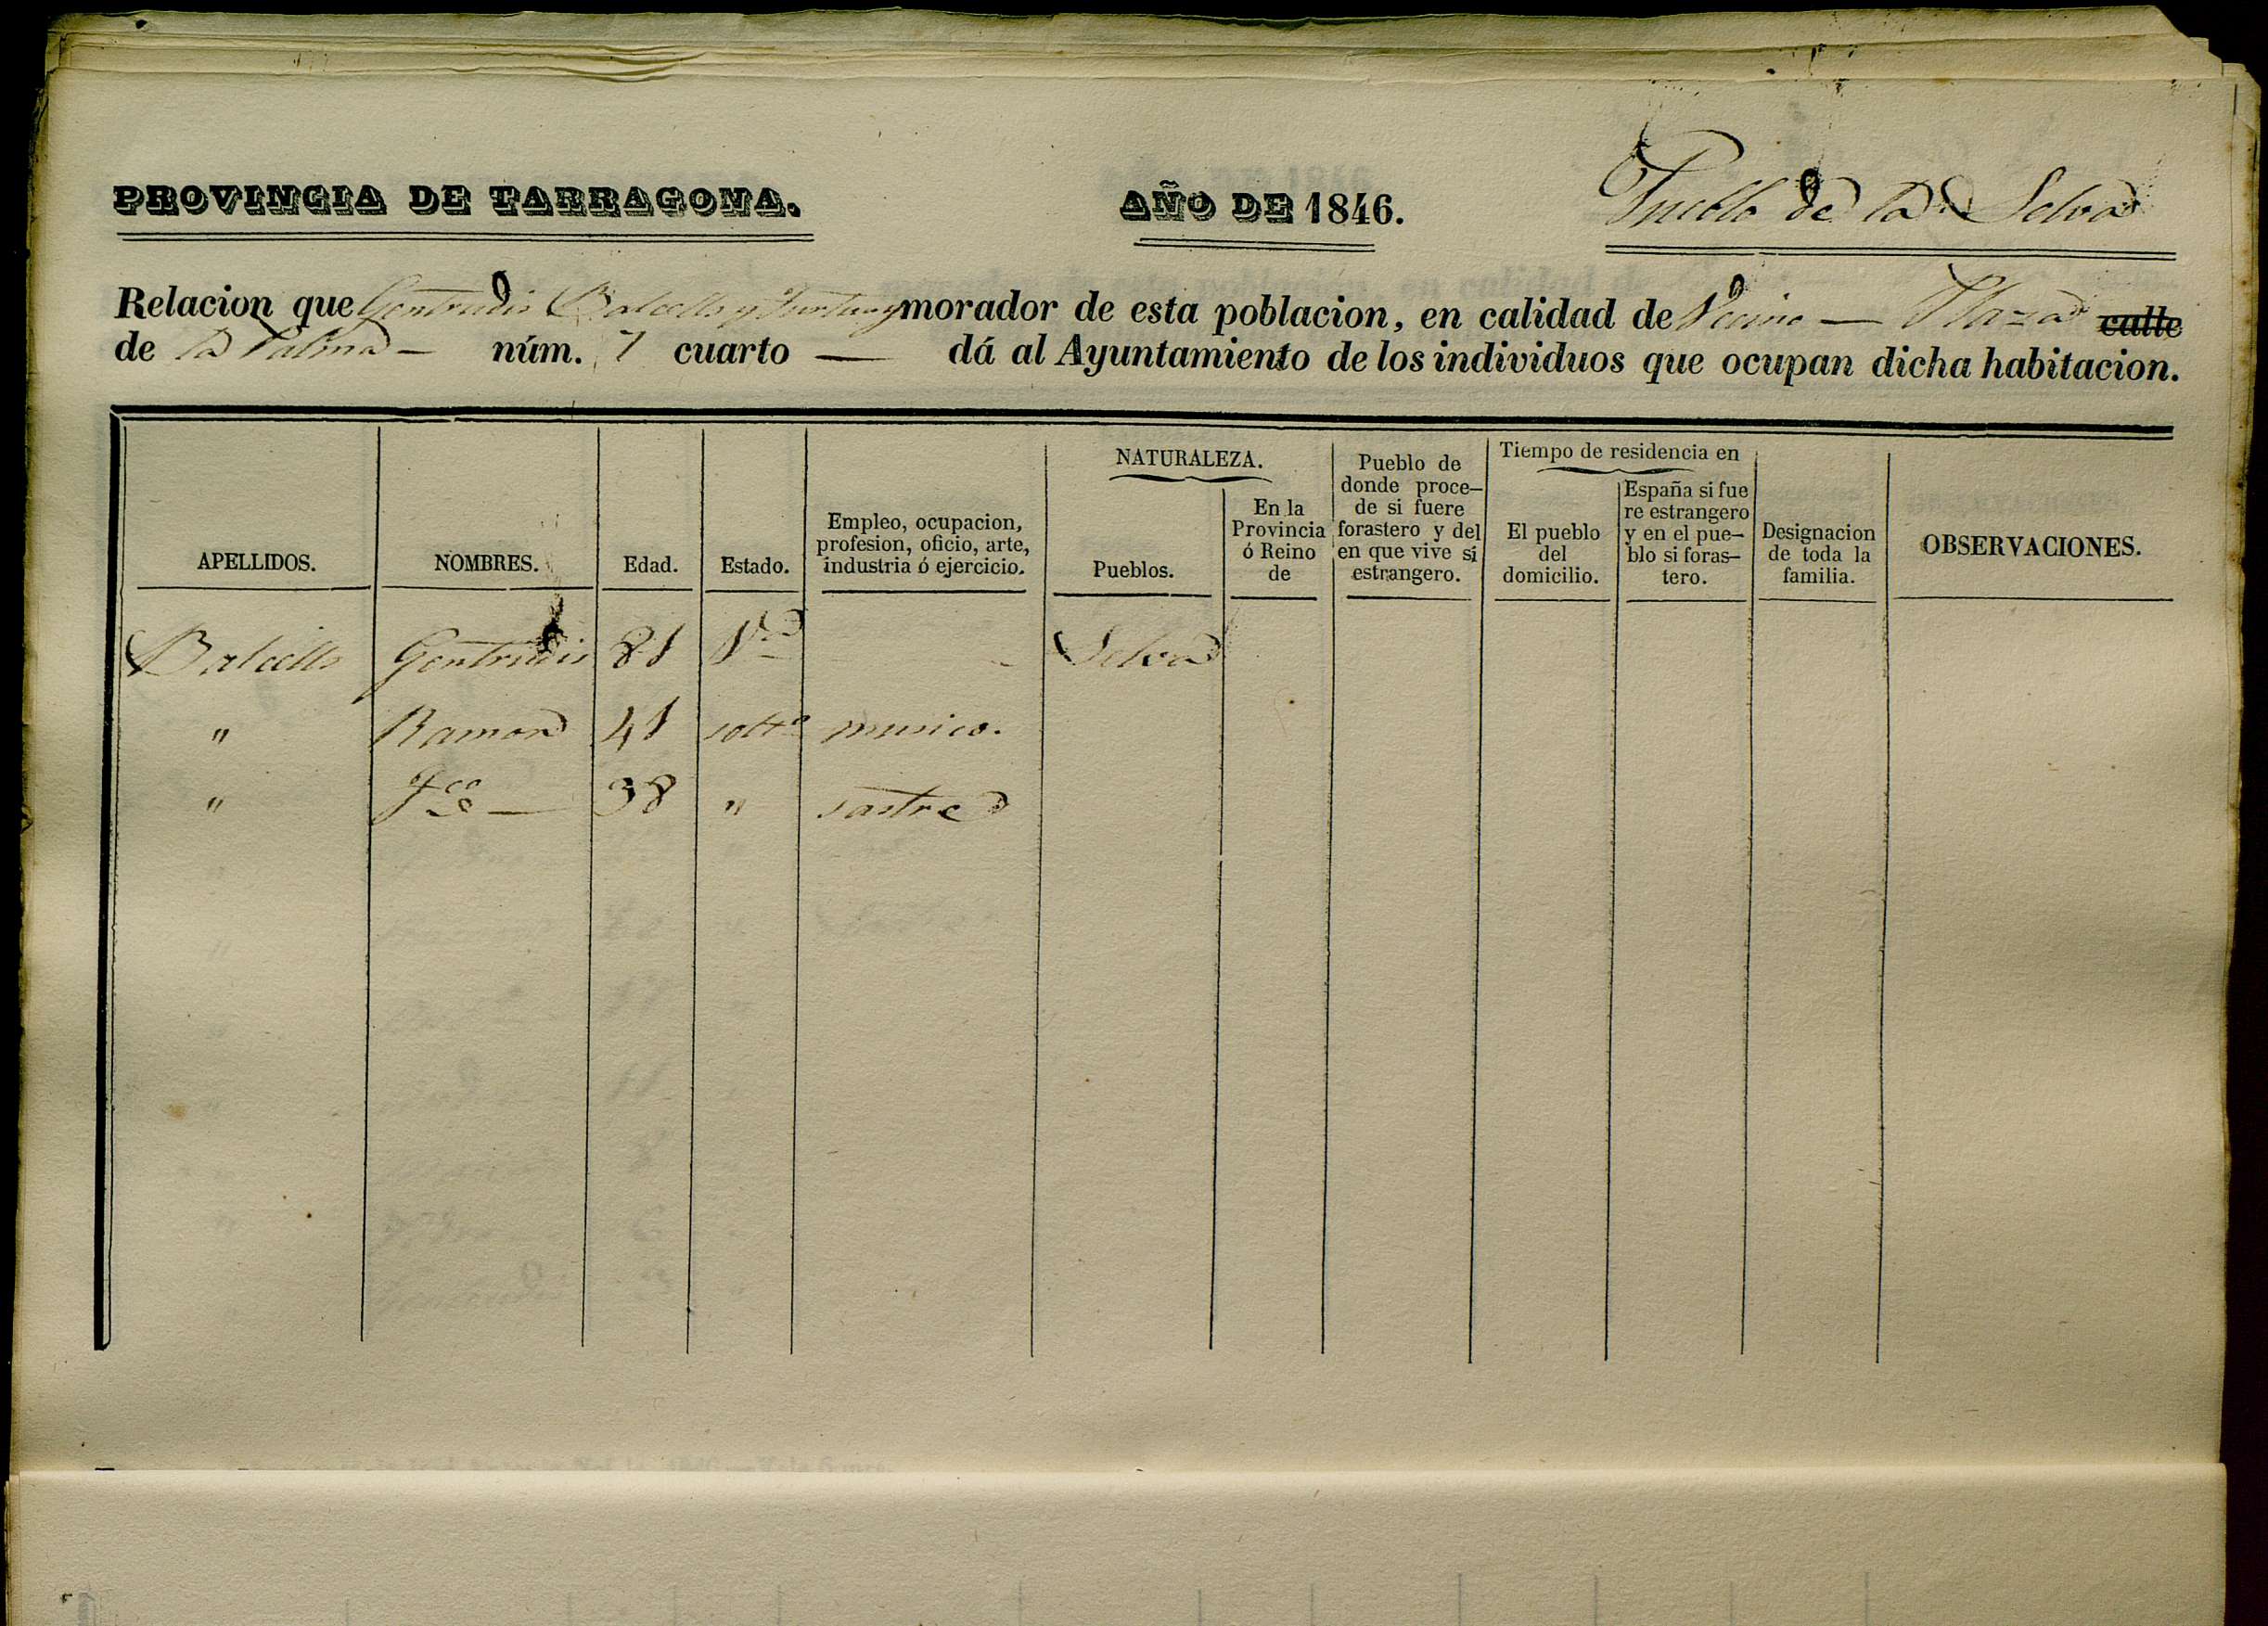 PROVINCIA DE TARRAGONA. AÑO DE 1846. Pueblo de la Selva
Relacion que Gertrudis Balcells y morador de esta poblacion, en calidad de Vecino — Plaza calle
de la Palma — núm. 7 cuarto — dá al Ayuntamiento de los individuos que ocupan dicha habitacion.
APELLIDOS.
NOMBRES.
Edad.
Estado.
Empleo, ocupacion,
profesion, oficio, arte,
industria ó ejercicio.
NATURALEZA.
Pueblos.
En la
Provincia
ó Reino
de
Pueblo de
donde proce-
de si fuere
forastero y del
en que vive si
estrangero.
Tiempo de residencia en
El pueblo
del
domicilio.
España si fue
re estrangero
y en el pue-
blo si foras-
tero.
Designacion
de toda la
familia.
OBSERVACIONES.
Balcells Gertrudis 81 Vda Selva
" Ramon 41 solto musico.
" Fco — 38 " sastre